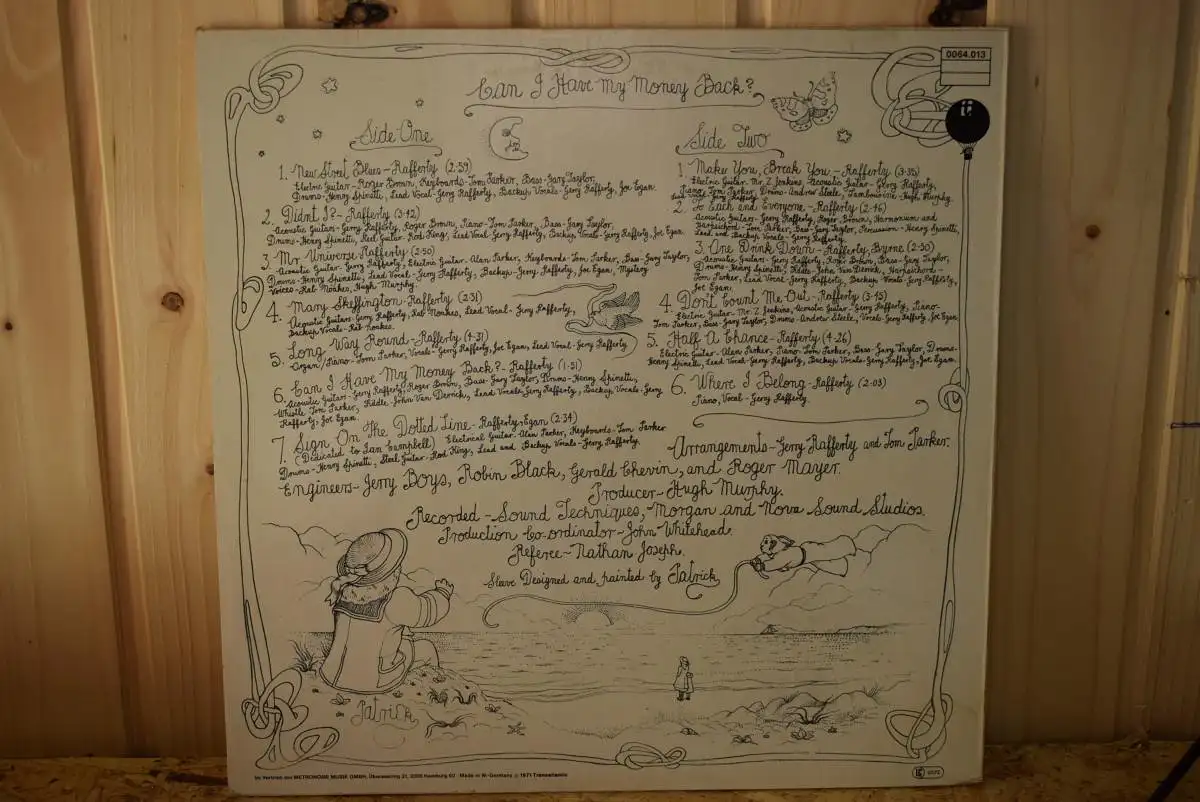 0064.013
Can I Have My Money Back?
Side One
1. New Street Blues - Rafferty (2:59)
Electric Guitar - Roger Brown, Keyboards - Tom Parker, Bass - Gary Taylor,
Drums - Henry Spinetti, Lead Vocal - Gerry Rafferty, Backup Vocals - Gerry Rafferty, Joe Egan.
2. Didn't I? - Rafferty (3:42)
Acoustic Guitar - Gerry Rafferty, Roger Brown, Piano - Tom Parker, Bass - Gary Taylor,
Drums - Henry Spinetti, Steel Guitar - Rod King, Lead Vocal - Gerry Rafferty, Backup Vocals - Gerry Rafferty, Joe Egan
3. Mr. Universe - Rafferty (2:50)
Acoustic Guitar - Gerry Rafferty, Electric Guitar - Alan Parker, Keyboards - Tom Parker, Bass - Gary Taylor,
Drums - Henry Spinetti, Lead Vocal - Gerry Rafferty, Backup - Gerry Rafferty, Joe Egan, Mystery
Voices - Rab Noakes, Hugh Murphy.
4. Mary Skeffington - Rafferty (2:31)
Acoustic Guitars - Gerry Rafferty, Rab Noakes, Lead Vocal - Gerry Rafferty,
Backup Vocals - Rab Noakes.
5. Long Way Round - Rafferty (4:31)
Organ/Piano - Tom Parker, Vocals - Gerry Rafferty, Joe Egan, Lead Vocal - Gerry Rafferty
6. Can I Have My Money Back? - Rafferty (1:51)
Acoustic Guitar - Gerry Rafferty, Roger Brown, Bass - Gary Taylor, Drums - Henry Spinetti,
Whistle Tom Parker, Fiddle - John Van Derrick, Lead Vocals - Gerry Rafferty, Backup Vocals - Gerry
Rafferty, Joe Egan.
7. Sign On The Dotted Line - Rafferty, Egan (2:34)
(Dedicated to Ian Campbell) Electrical Guitar - Alan Parker, Keyboards - Tom Parker
Drums - Henry Spinetti, Steel Guitar - Rod King, Lead and Backup Vocals - Gerry Rafferty.
Side Two
1. Make You, Break You - Rafferty (3:35)
Electric Guitar - Mr. Z Jenkins, Acoustic Guitar - Gerry Rafferty,
Piano, Tom Parker, Drums - Andrew Steele, Tambourine - Hugh Murphy.
Lead Vocal - Gerry Rafferty
2. To Each and Everyone - Rafferty (2:46)
Acoustic Guitars - Gerry Rafferty, Roger Brown, Harmonium and
Harpsichord - Tom Parker, Bass - Gary Taylor, Percussion - Henry Spinetti,
Lead and Backup Vocals - Gerry Rafferty.
3. One Drink Down - Rafferty, Byrne (2:50)
Acoustic Guitar - Gerry Rafferty, Roger Brown, Bass - Gary Taylor,
Drums - Henry Spinetti, Fiddle - John Van Derrick, Harpsichord -
Tom Parker, Lead Vocal - Gerry Rafferty, Backup Vocals - Gerry Rafferty,
Joe Egan.
4. Don't Count Me Out - Rafferty (3:45)
Electric Guitar - Mr. Z Jenkins, Acoustic Guitar - Gerry Rafferty, Piano -
Tom Parker, Bass - Gary Taylor, Drums - Andrew Steele, Vocals - Gerry Rafferty, Joe Egan
5. Half A Chance - Rafferty (4:26)
Electric Guitar - Alan Parker, Piano Tom Parker, Bass - Gary Taylor, Drums -
Henry Spinetti, Lead Vocal - Gerry Rafferty, Backup Vocals - Gerry Rafferty, Joe Egan.
6. Where I Belong - Rafferty (2:03)
Piano, Vocal - Gerry Rafferty.
Arrangements - Gerry Rafferty and Tom Parker.
Engineers - Jerry Boys, Robin Black, Gerald Chevin, and Roger Mayer.
Producer - Hugh Murphy.
Recorded - Sound Techniques, Morgan and Nova Sound Studios.
Production Co-ordinator - John Whitehead.
Referee - Nathan Joseph.
Sleeve Designed and painted by Patrick
Patrick
Im Vertrieb der METRONOME MUSIK GMBH, Überseering 21, 2000 Hamburg 60 · Made in W.-Germany ℗ 1971 Transatlantic